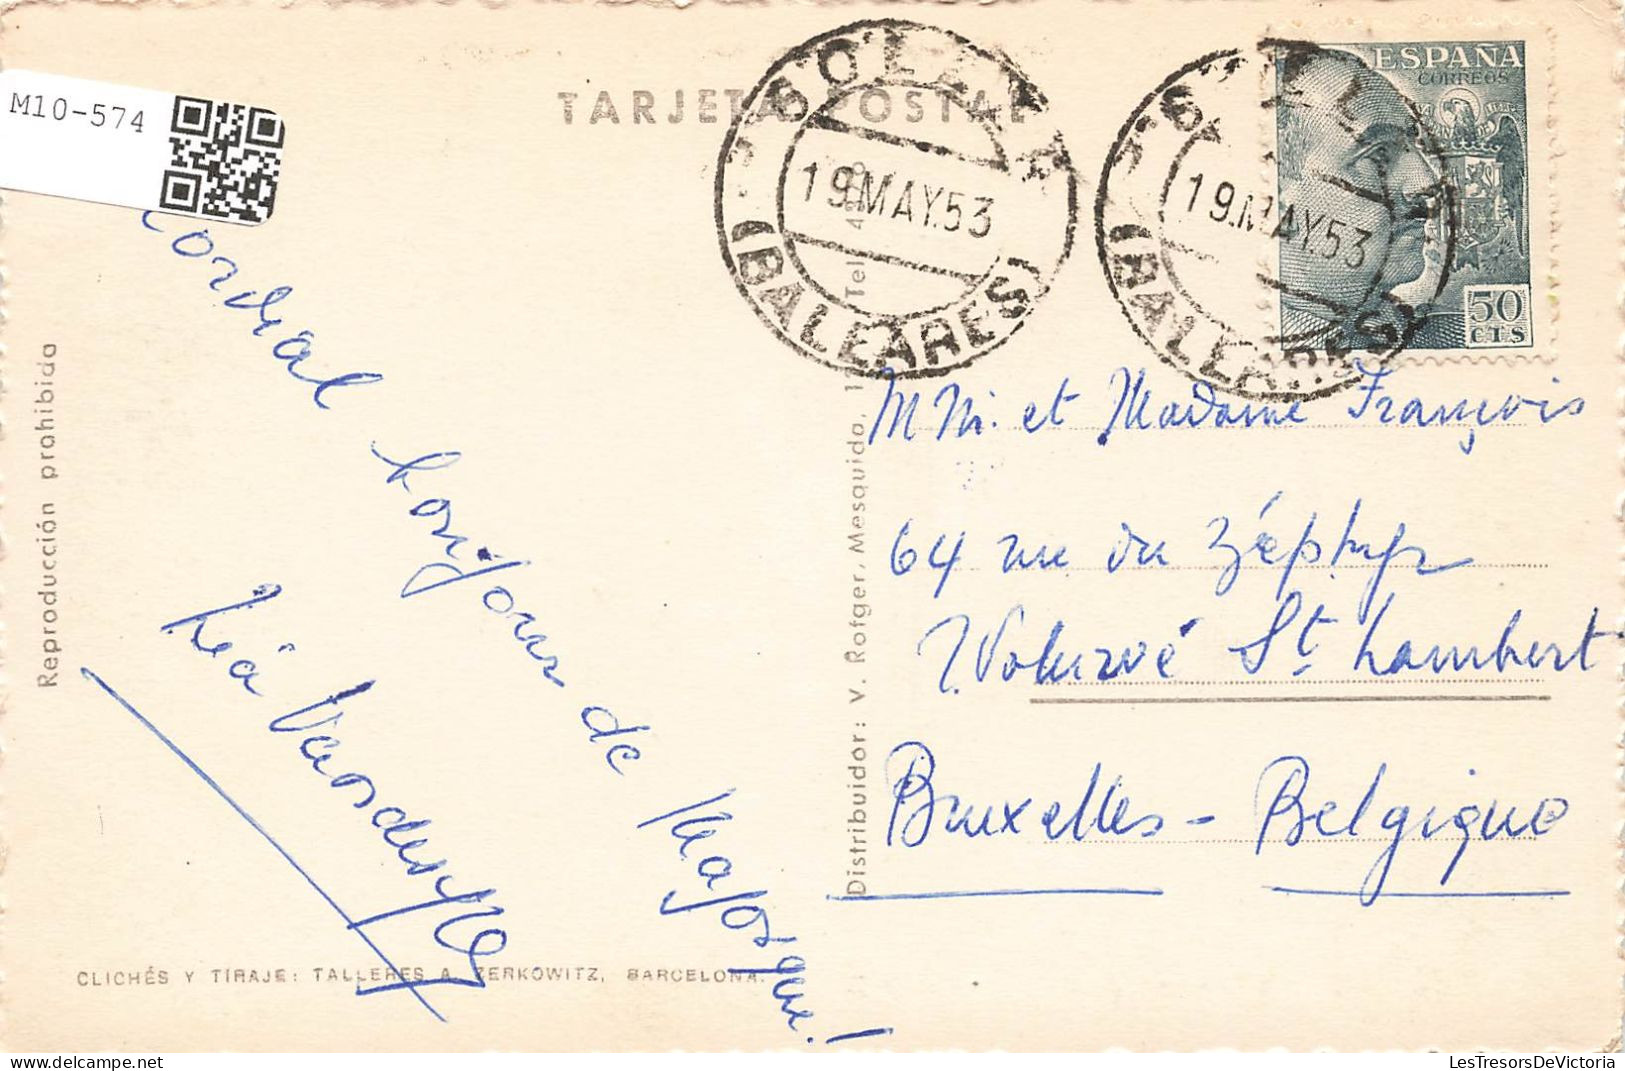 M10-574
TARJETA POSTAL
SOLLER
19.MAY.53
(BALEARES)
SOLLER
19.MAY.53
(BALEARES)
ESPAÑA
CORREOS
50
CTS
Cordial bonjour de Majorque!
Léa
Reproducción prohibida
Distribuidor: V. Rotger, Mesquida, Tel.
CLICHÉS Y TIRAJE: TALLERES A. ZERKOWITZ, BARCELONA.
M Mr. et Madame François
64 rue du Zéphyr
Woluwé St Lambert
Bruxelles - Belgique
LesTresorsDeVictoria